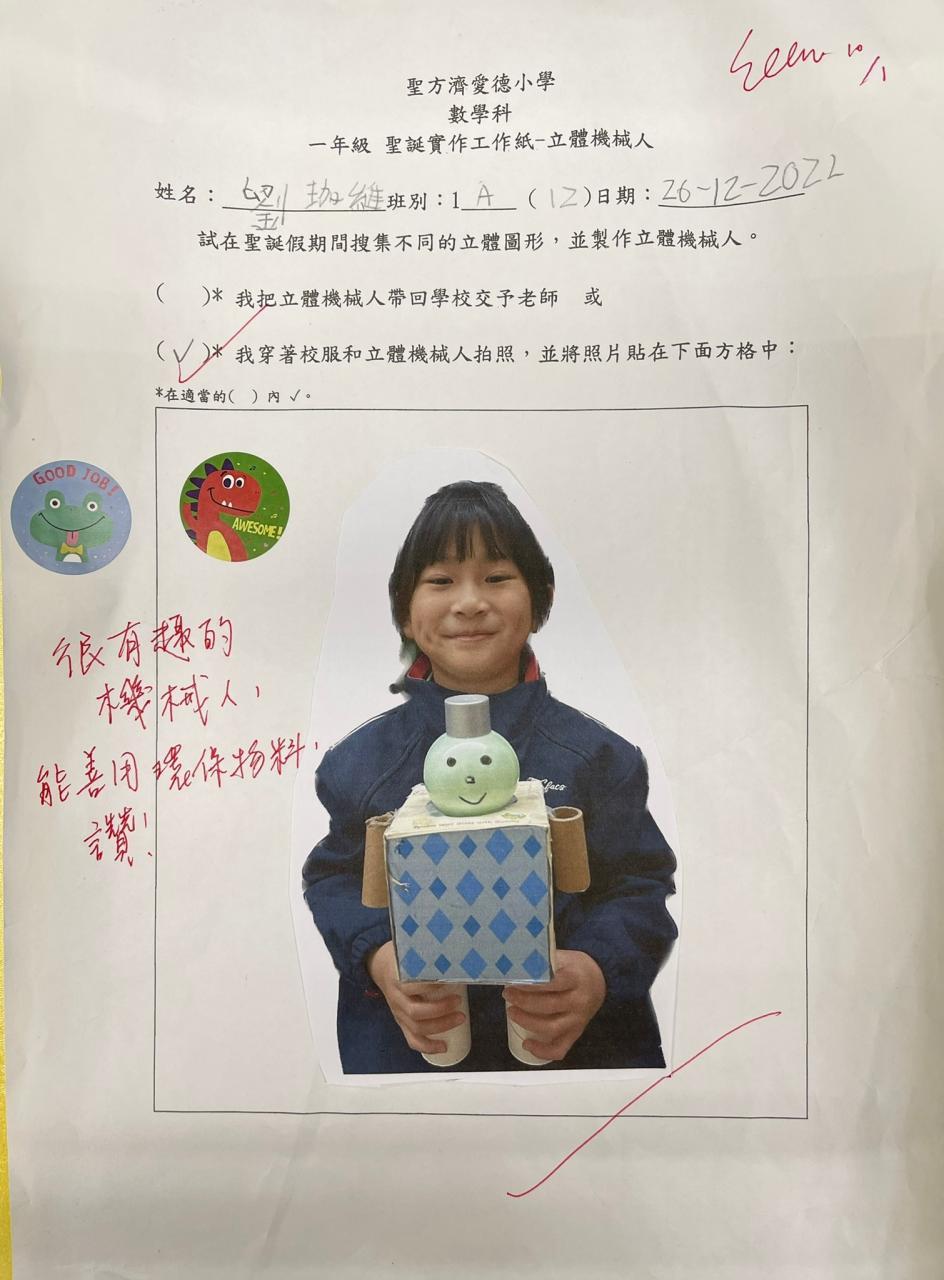 聖方濟愛德小學
數學科
一年級 聖誕實作工作紙-立體機械人
姓名：劉珈維班別：1 A （12）日期：26-12-2022
試在聖誕假期間搜集不同的立體圖形，並製作立體機械人。
（ ）* 我把立體機械人帶回學校交予老師 或
（✓）* 我穿著校服和立體機械人拍照，並將照片貼在下面方格中：
*在適當的（ ）內 ✓。
GOOD JOB!
AWESOME!
很有趣的
機械人，
能善用環保物料，
讚！
10/1